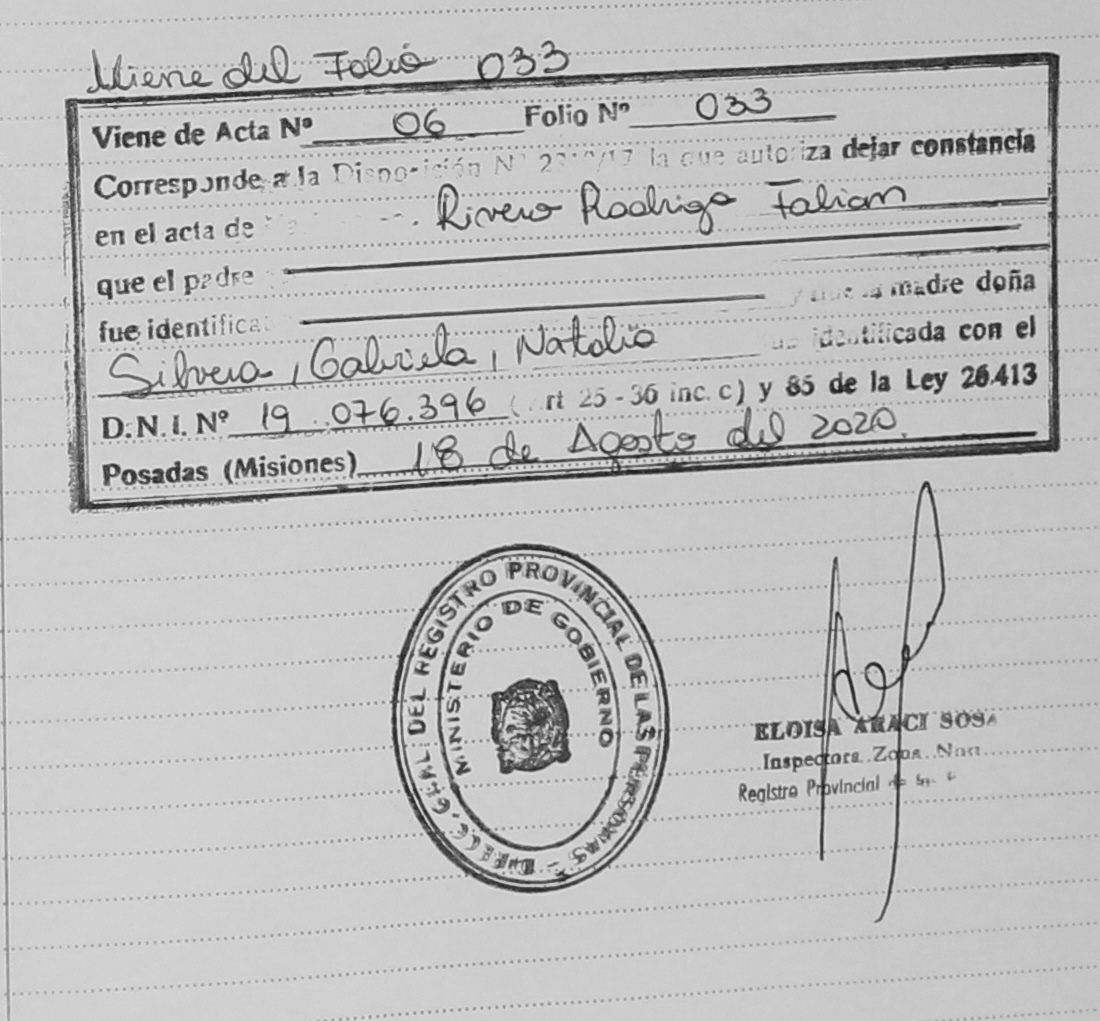 Viene del Folio 033
Viene de Acta Nº 06 Folio Nº 033
Corresponde a la Disposición Nº /17 la que autoriza dejar constancia
en el acta de Rivero Rodrigo Fabian
que el padre
fue identificad y que la madre doña
Silvera, Gabriela, Natalia identificada con el
D.N.I. Nº 19.076.396 ( rt 25 - 36 inc. c) y 85 de la Ley 26.413
Posadas (Misiones) 18 de Agosto del 2020.
DIRECC. GRAL. DEL REGISTRO PROVINCIAL DE LAS PERSONAS -
MINISTERIO DE GOBIERNO
ELOISA ARACI SOSA
Inspectora Zona
Registro Provincial de